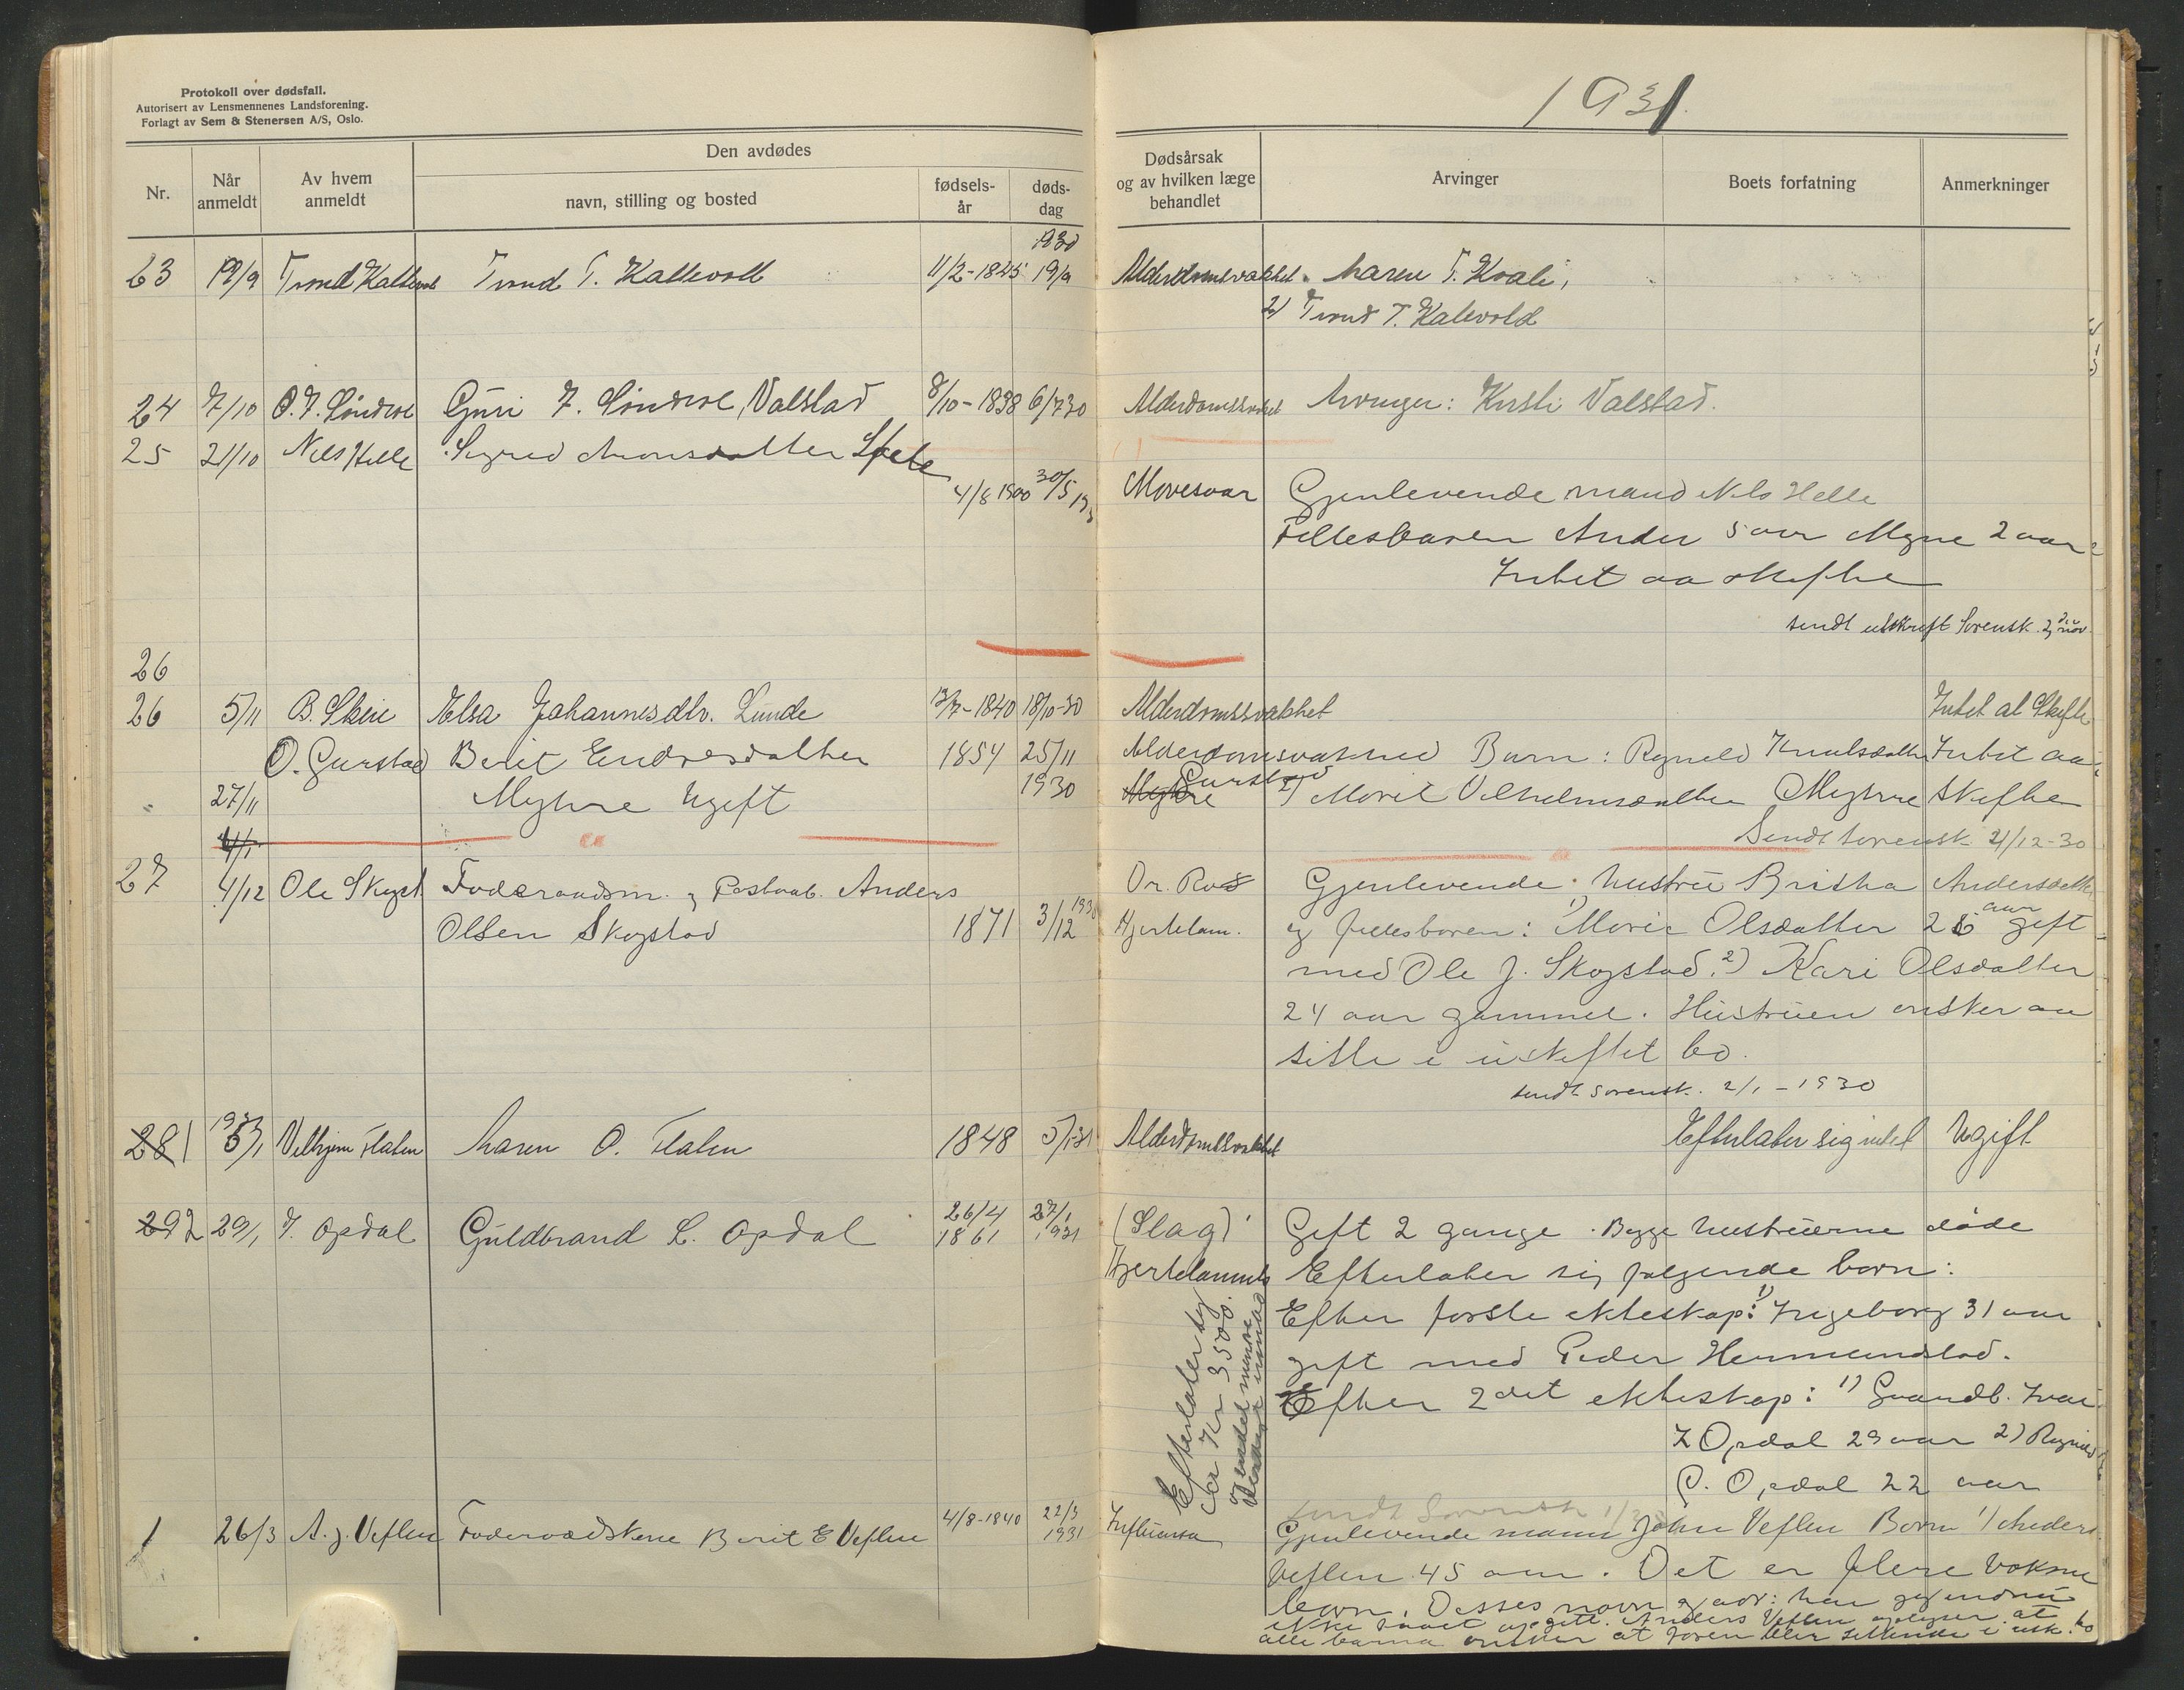 Protokoll over dødsfall.
Autorisert av Lensmennenes Landsforening.
Forlagt av Sem & Stenersen A/S, Oslo.
1931.
Nr.
Når anmeldt
Av hvem anmeldt
Den avdødes
navn, stilling og bosted
fødsels-år
døds-dag
Dødsårsak og av hvilken læge behandlet
Arvinger
Boets forfatning
Anmerkninger
1930
63 19/9 Trond Kallevol Trond T. Kallevold 11/2-1845 19/9 Alderdomsvakhet Maren T. Kvale,
2) Trond T. Kalevold
24 7/10 O. T. Sönderl Guri T. Sönderl, Valstad 8/10-1838 6/7 30 Alderdomssvakhet Arvinger: Kirsti Valstad.
25 21/10 Nils Helle Sigrid Monsdatter
4/8 1900 30/5 Gjenlevende mand Nils Helle
Fellesbaren Ander 5 aar Magne 2 aar
Intet aa skifte
sendt utskrift Sorensk. nov.
26
26 5/11 B. Skeie Elsa Johannesdtr. Lunde 1840 18/10-30 Alderdomssvakhet Intet at Skifte
O. Gurstad Berit Endresdatter 1854 25/11 Alderdomsvakhed Barn: Ragnild Knutsdatter Intet aa
27/11 Myhre Ugift 1930 Myhre Gurstad 2) Marit Vilhelmsdatter Myhre Skifte
Sendt sorensk 21/12-30
27 4/12 Ole Skogst Foderaadsm. og Postaab. Anders Dr. Ros Gjenlevende hustru Britha Andersdatter
Olsen Skogstad 1871 3/12 1930 Hjertelam. og fellesbaren: 1) Marie Olsdatter 26 aar gift
med Ole J. Skogstad. 2) Kari Olsdatter
24 aar gammel. Hustruen ønsker aa
sitte i uskiftet bo.
sendt sorensk. 2/1-1930
281 5/1 Vilhjem Flaten Maren O. Flaten 1848 5/1 31 Alderdomssvakhet Efterlater sig intet Ugift
292 29/1 T. Opdal Guldbrand L. Opdal 26/4 1861 27/1 1931 (Slag) Gift 2 gange. Begge hustruerne døde
Hjertelammels Efterlater sig følgende barn:
Efter første ekteskap: 1) Ingeborg 31 aar
gift med Peder Hermundstad.
Efter 2det ekteskap: 1) Gaardb. Ivar
Opdal 29 aar 2) Ragnild
Opdal 22 aar
Efterlater sig
ca Kr 3500.
sendt Sorensk
1 26/3 A. J. Veflen Foderaadskone Berit E Veflen 4/8-1840 22/3 1931 Influensa Gjenlevende mann John Veflen Børn 1) Anders
Veflen 45 aar. Det er flere voksne
børn. Disses navn og adr: har jeg endnu
ikke faaet opgitt. Anders Veflen oplyser at
alle barna ønsker at faren blir sittende i usk. bo